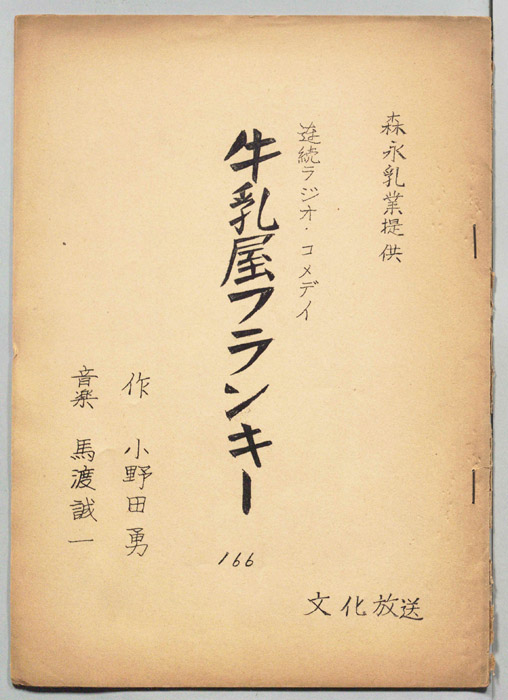 森永乳業提供
連続ラジオ・コメデイ
牛乳屋フランキー
166
作 小野田勇
音楽 馬渡誠一
文化放送